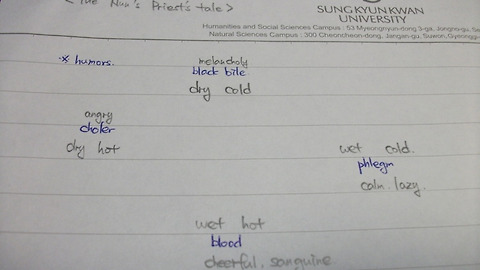 < The Nun's Priest's tale >
SUNGKYUNKWAN
UNIVERSITY
Humanities and Social Sciences Campus : 53 Myeongnyun-dong 3-ga, Jongno-gu,
Natural Sciences Campus : 300 Cheoncheon-dong, Jangan-gu, Suwon,
* humors.
melancholy
black bile
dry cold
angry
choler
dry hot
wet cold.
phlegm
calm. lazy.
wet hot
blood
cheerful. sanguine